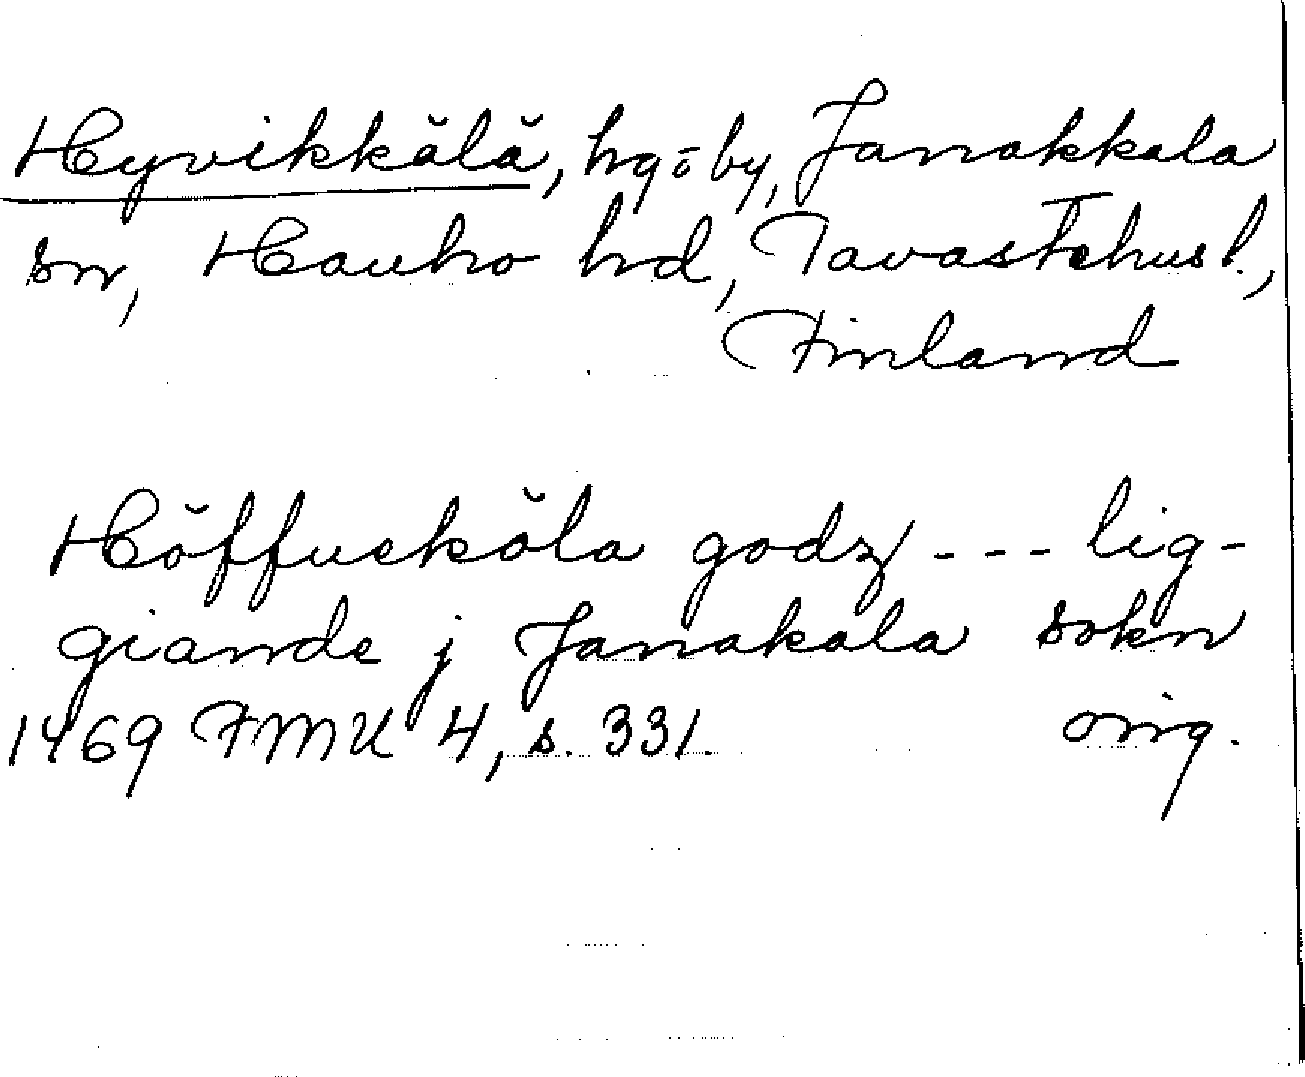 Hyvikkälä, hg o by, Janakkala
sn, Hauho hd, Tavastehus l.,
Finland
Höffueköla godz --- lig-
giande j Janakala sokn
1469 FMU 4, s. 331. orig.